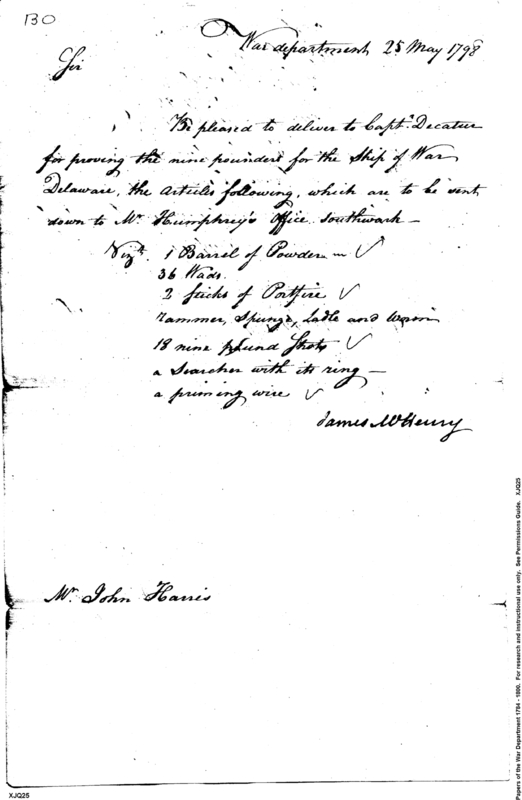 BO
War department 25 May 1798
Sir
Be pleased to deliver to Capt.n Decatur
for proving the nine pounders for the Ship of War
Delaware, the articles following, which are to be sent
down to Mr. Humphreys Office Southwark —
Vizt. 1 Barrel of Powder — ✓
36 Wads
2 sticks of Portfire ✓
rammer, Spunge, Ladle and Worm
18 nine pound Shots ✓
a Searcher with its ring —
a priming wire ✓
James McHenry
Mr. John Harris
XJQ25
Papers of the War Department 1784 - 1800. For research and instructional use only. See Permissions Guide. XJQ25